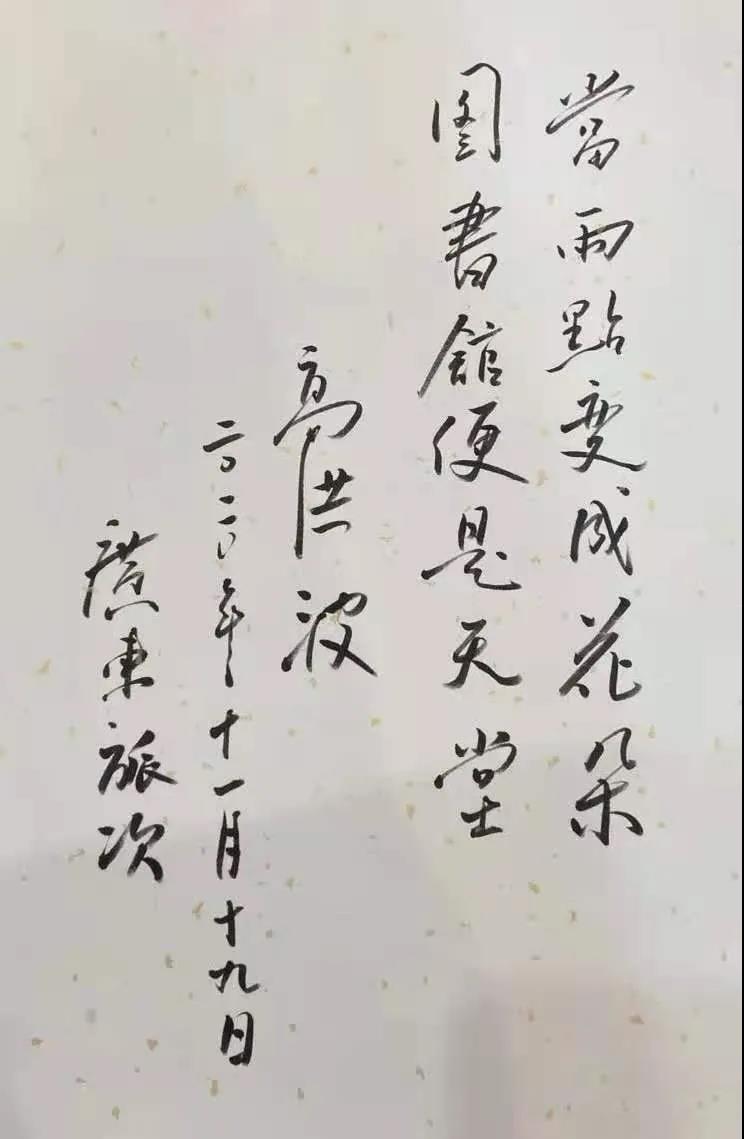 當雨點变成花朵
图書館便是天堂
高洪波
二〇二〇年十一月十九日
廣東旅次